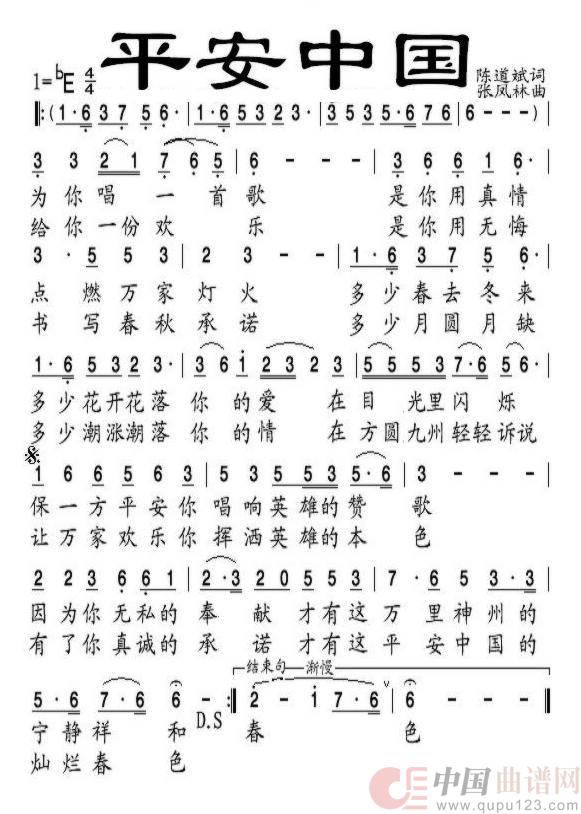 平安中国
1=bE 4/4
陈道斌词
张凤林曲
‖:(1·6 3 7 5 6· | 1·6 5 3 2 3· | 3 5 3 5·6 7 6 | 6 - - -) |
3 3 2 1 7 6 5 | 6 - - - | 3 6 6 1 6· |
为你唱一首歌 是你用真情
给你一份欢乐 是你用无悔
3 · 5 5 3 | 2 3 - - | 1·6 3 7 5 6 |
点燃万家灯火 多少春去冬来
书写春秋承诺 多少月圆月缺
1·6 5 3 2 3· | 3 6 i 2 3 2 3 | 5 5 5 3 7·6 5· |
多少花开花落你的爱 在目光里闪烁
多少潮涨潮落你的情 在方圆九州轻轻诉说
1 6 6 5 6 3 | 5 3 5 5 3 5·6 | 3 - - - |
保一方平安你唱响英雄的赞歌
让万家欢乐你挥洒英雄的本色
2 2 3 6 6 1 | 2·3 2 0 5 5 3 | 7 · 6 5 3·3 |
因为你无私的奉献才有这万里神州的
有了你真诚的承诺才有这平安中国的
结束句 渐慢
5·6 7·6 6 - :‖ 2 - i 7·6 | 6 - - - ‖
D.S
宁静祥和 春色
灿烂春色
中国曲谱网
www.qupu123.com